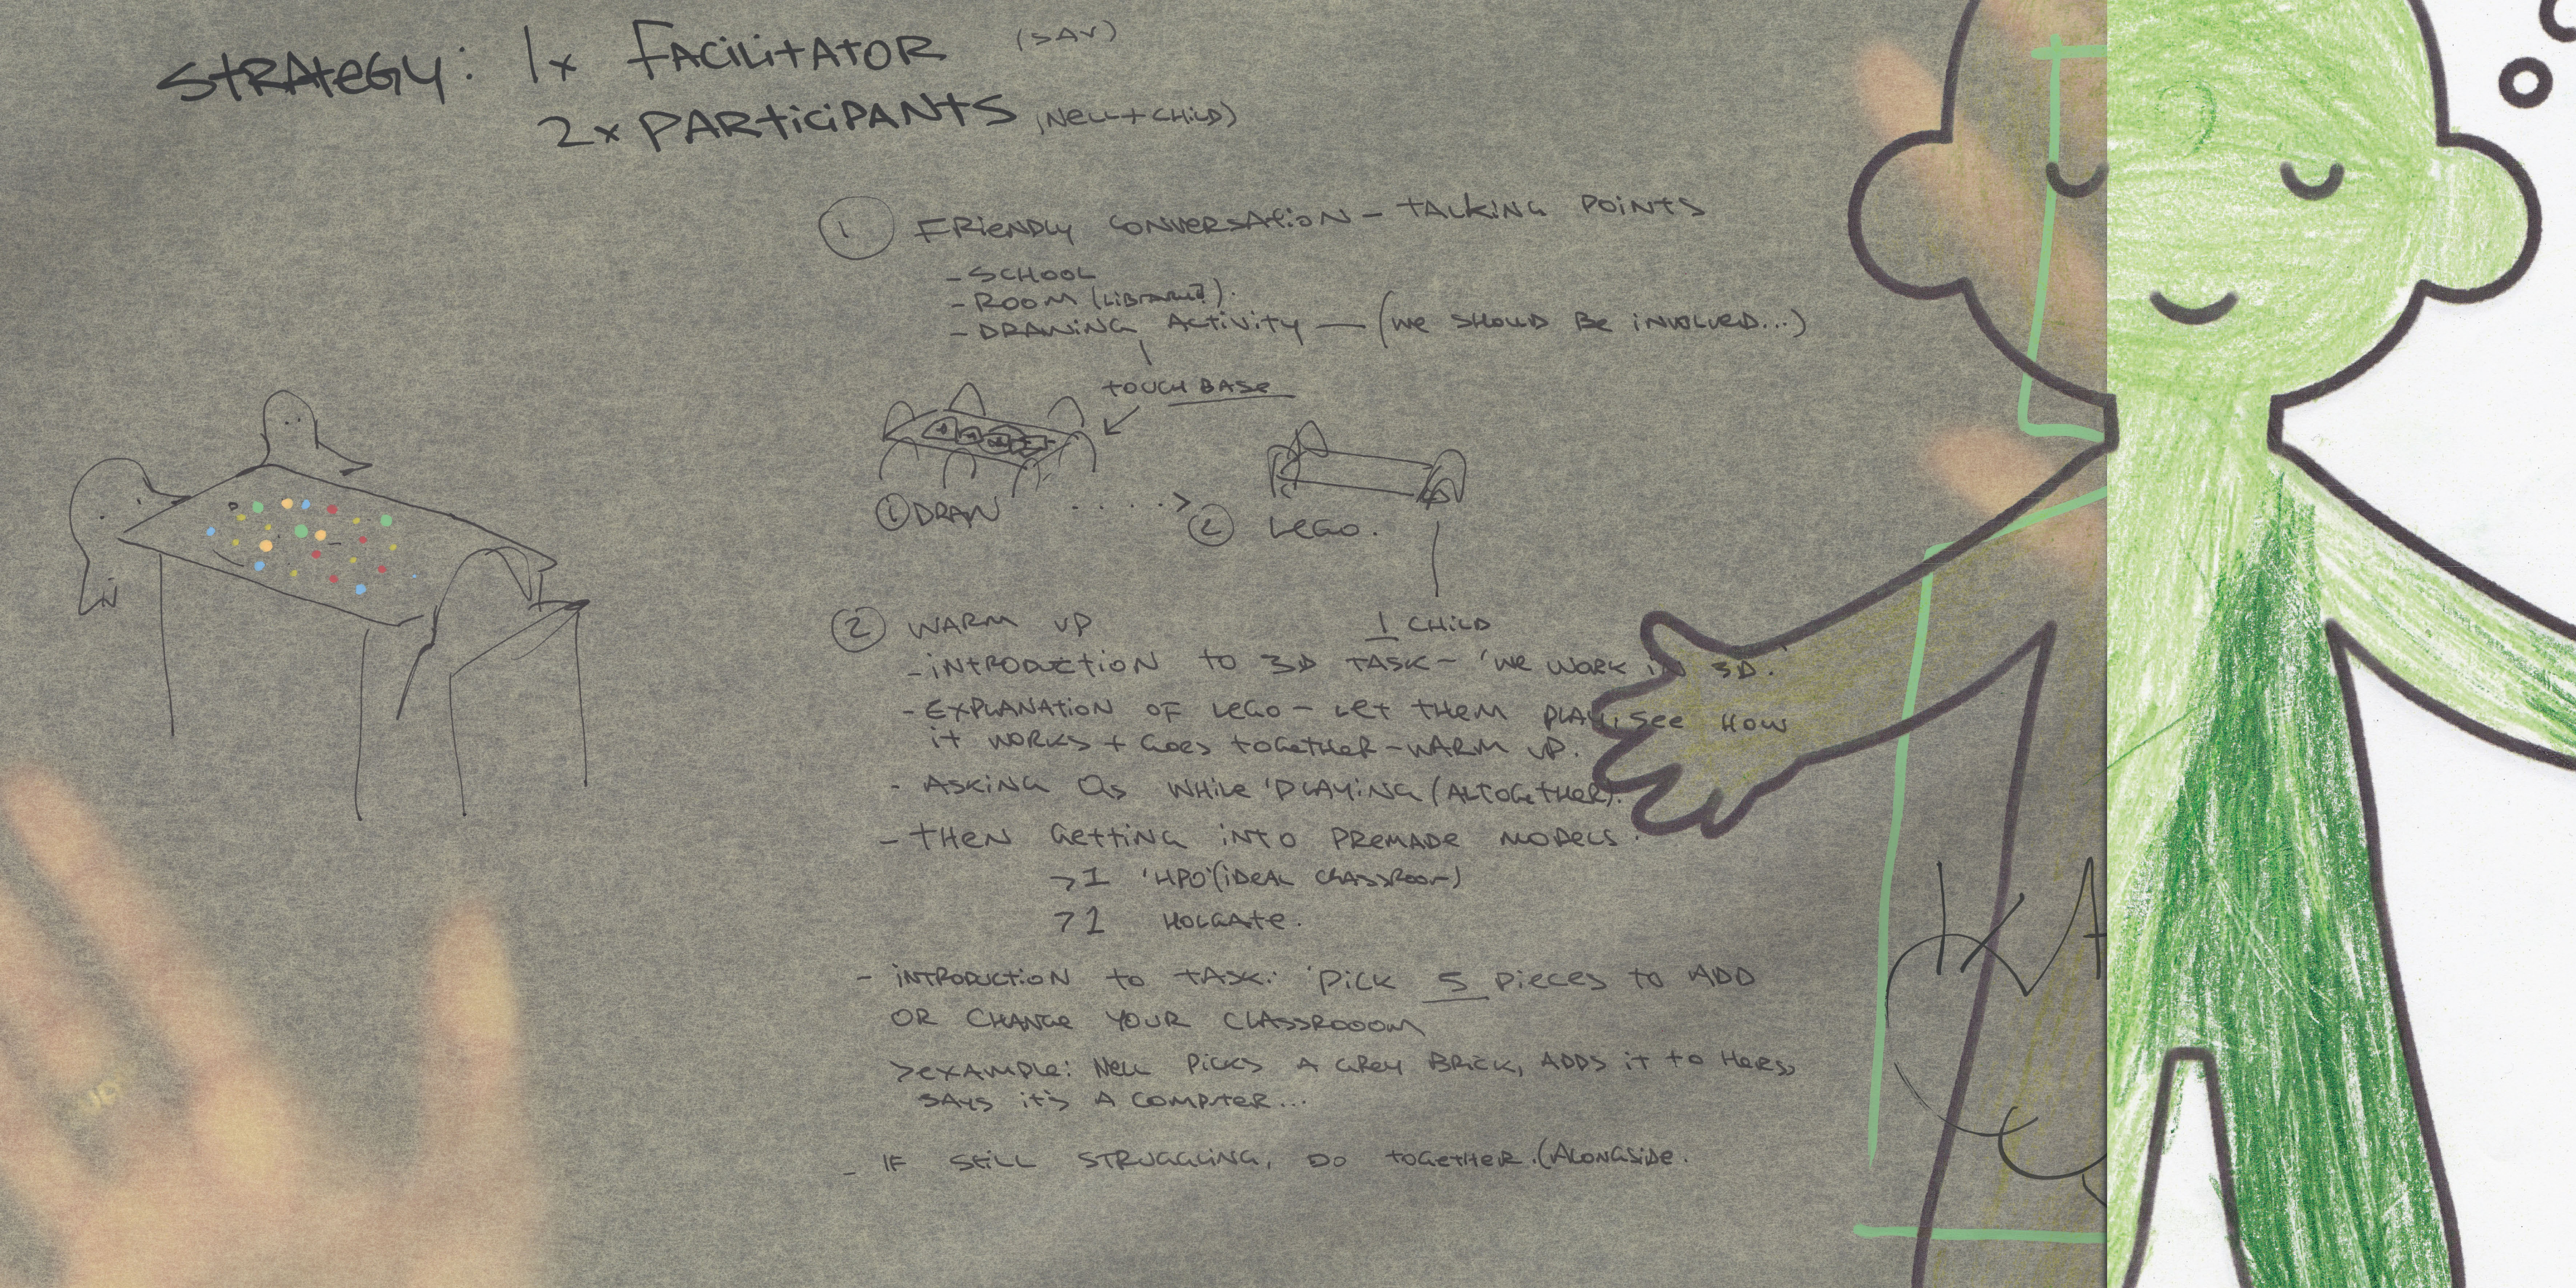 STRATEGY: 1x FACILITATOR (SAV)
2x PARTICIPANTS (NELL + CHILD)
1 FRIENDLY CONVERSATION - TALKING POINTS
- SCHOOL
- ROOM (LIBRARY?).
- DRAWING ACTIVITY — (WE SHOULD BE INVOLVED...)
TOUCH BASE
1 DRAW ....> 2 LEGO.
1 CHILD
2 WARM UP
- INTRODUCTION TO 3D TASK - 'WE WORK IN 3D.'
- EXPLANATION OF LEGO - LET THEM PLAY, SEE HOW
IT WORKS + GOES TOGETHER - WARM UP.
- ASKING Qs WHILE 'PLAYING (ALTOGETHER).
- THEN GETTING INTO PREMADE MODELS.
>1 'HPO' (IDEAL CLASSROOM)
>1 HOLGATE.
- INTRODUCTION TO TASK: 'PICK 5 PIECES TO ADD
OR CHANGE YOUR CLASSROOOM
> EXAMPLE: NELL PICKS A GREY BRICK, ADDS IT TO HERS,
SAYS IT'S A COMPUTER...
- IF STILL STRUGGLING, DO TOGETHER. (ALONGSIDE.